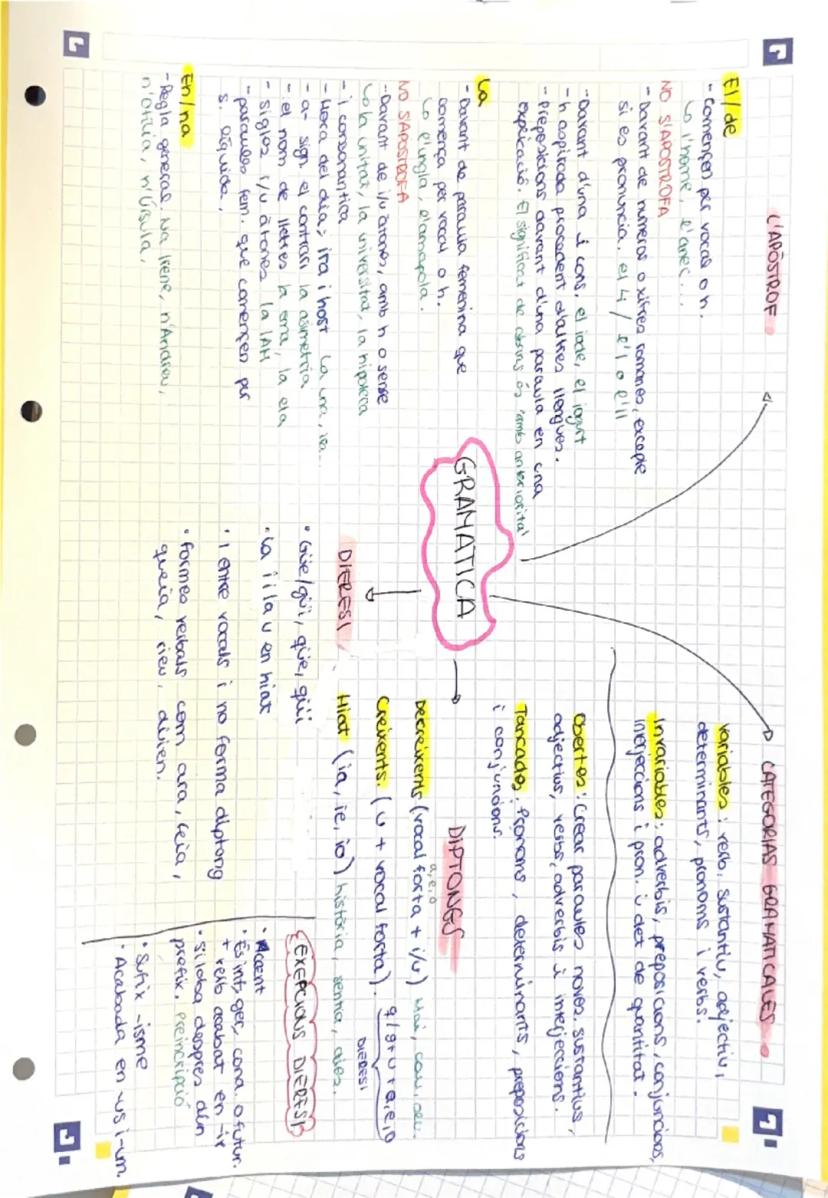 L'APÒSTROF
El/de
- Començen per vocal o h.
↳ l'home, l'ànec...
NO S'APOSTROFA
- Davant de números o xifres romanes, excepte
si es pronuncia. el 4 / l'1 o l'11
- Davant d'una i cons. el iode, el iogurt
- h aspirada procedent d'altres llengues.
- Preposicions davant d'una paraula en una
explicació. El significat de abans és "amb anterioritat
La
- Davant de paraula femenina que
comença per vocal o h.
↳ l'ungla, l'amapola.
NO S'APOSTROFA
- Davant de i/u àtones, amb h o sense
↳ la unitat, la universitat, la hipoteca
- i consonàntica
- Hora del dia; ira i host La una, ira...
- a- sign. el contrari la asimetria
- el nom de lletres la ema, la ela
- sigles i/u àtones la IAH
- paraules fem. que començen per
s. líquida,
En/na
- Regla general Na Irene, n'Andreu,
n'Otília, n'Úrsula,
GRAMATICA
CATEGORIAS GRAMATICALES
Variables: verb, sustantiu, adjectiu,
determinants, pronoms i verbs.
Invariables: adverbis, preposicions, conjuncions,
interjeccions i pron. i det de quantitat.
Obertes: Crear paraules noves. sustantius,
adjectius, verbs, adverbis i interjeccions.
Tancades: Pronoms, determinants, preposicions
i conjuncions.
DIPTONGS
a,e,o
Decreixents (vocal forta + i/u) Mai, cau,
Creixents. (u + vocal forta). q/g+u+a,e,o
DIERESI
Hiat (ia, ie, io) història, sentia,
DIERESI
• Güe/güi, qüe, qüi
• La i i la u en hiat
• I entre vocals i no forma diptong
• Formes verbals com ara, feia,
queia, rieu, diuen.
EXEPCIONS DIERESI
• Accent
• És inf, ger, cond. o futur.
+ verb acabat en -ir
• Síl·laba despres d'un
prefix. Preinscripció
• Sufix -isme
• Acabada en -us i -um.